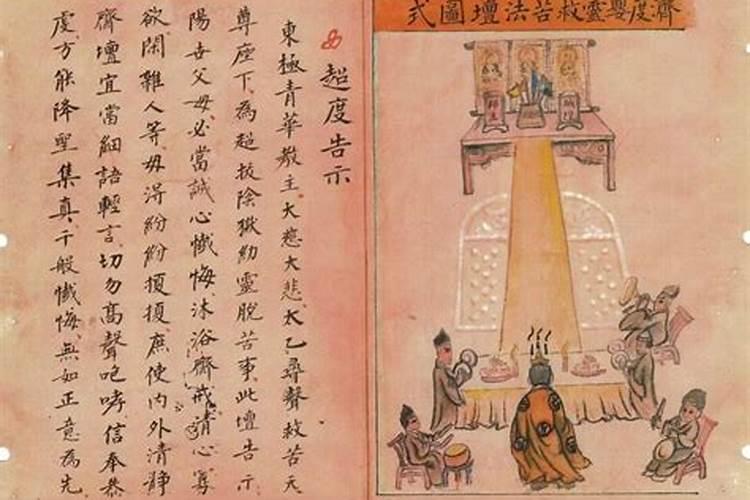 濟度嬰靈救苦法壇圖式
超度告示
東極青華教主大慈大悲太乙尋聲救苦天
尊座下為超拔陰獄幼靈脫苦事此壇告示
陽世父母必當誠心懺悔沐浴齋戒清心寡
欲閑雜人等毋得紛紛擾擾庶使內外清靜
齋壇宜當細語輕言切勿高聲咆哮信奉恭
虔方能降聖集真千般懺悔無如正意為先